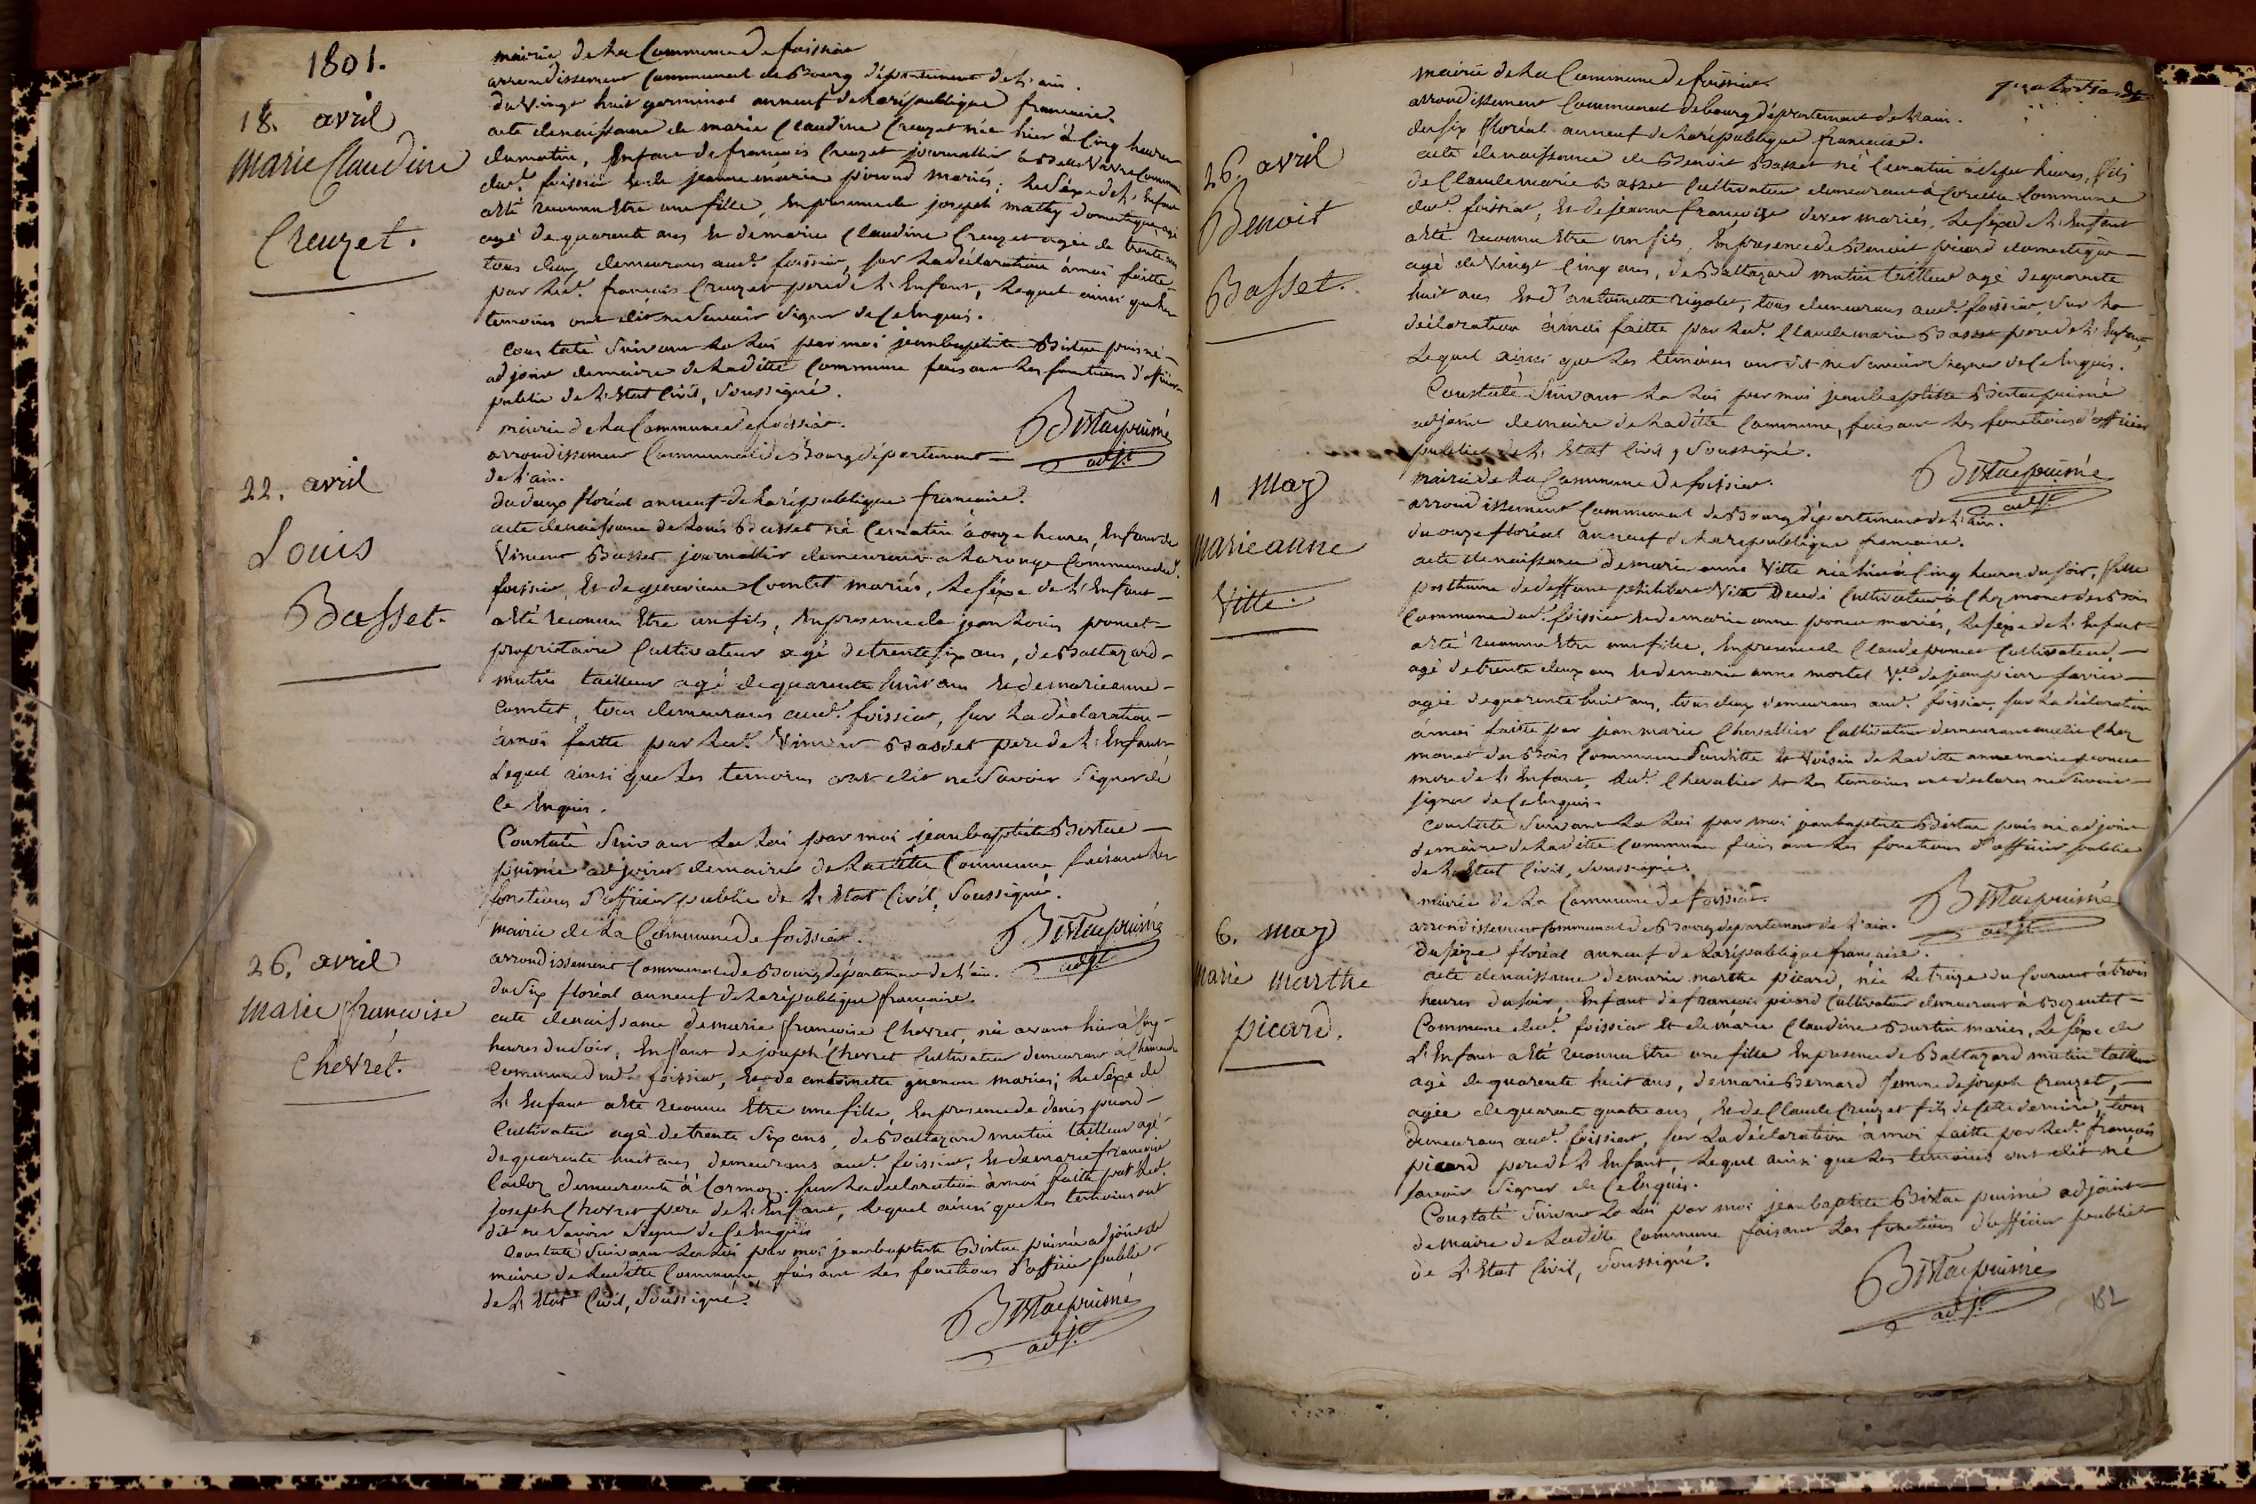 1801.
18. avril
Marie Claudine
Creuzet.
mairie de La Commune de foissiat
arrondissement Communal de Bourg département de L'ain.
du vingt huit germinal an neuf de La république francaise.
acte de naissance de marie Claudine Creuzet née hier à Cinq heures
du matin, Enfant de francois Creuzet journallier Commune
dud.t foissiat et de jeanne marie mariés; Le Séxe de L'Enfant
a Eté reconnu Etre une fille, En présence de joseph mathy domestique
agé de quarante ans Et de marie Claudine Creuzet agée de trente ans
tous deux demeurans aud.t foissiat, sur La déclaration à moi faitte
par Led.t francois Creuzet pere de L'Enfant, Lequel ainsi que Les
temoins ont dit ne Savoir Signer de Ce Enquis.
Constaté Suivant La Loi par moi jean baptiste puisné
adjoint de maire de Laditte Commune faisant Les fonctions d'officier
public de L'Etat Civil, Soussigné.
puisné
adj.t
22. avril
Louis
Basset.
mairie de La Commune de foissiat.
arrondissement Communal de Bourg département
de L'ain.
du deux floréal an neuf de La république francaise.
acte de naissance de Louis Basset né Ce matin à onze heures, Enfant de
Vincent Basset journallier demeurant a Commune dud.t
foissiat, Et de genevieve Comtet mariés, Le séxe de L'Enfant
a Eté reconnu Etre un fils, En présence de jean Louis poncet
propriétaire Cultivateur agé de trente six ans, de Baltazard
mutin tailleur agé de quarante huit ans Et de marieanne
Comtet, tous demeurans aud.t foissiat, sur La déclaration
à moi faitte par Led.t Vincent Basset pere de L'Enfant
Lequel ainsi que Les temoins ont dit ne Savoir Signer de
Ce Enquis.
Constaté Suivant La Loi par moi jean baptiste
puiné adjoint de maire de Laditte Commune faisant Les
fonctions d'officier public de L'Etat Civil, Soussigné.
puisné
adj.t
26. avril
Marie françoise
Chevret.
mairie de La Commune de foissiat.
arrondissement Communal de Bourg département de L'ain.
du Six floréal an neuf de La république francaise.
acte de naissance de marie françoise Chevret, née avant hier à
heures du Soir, Enfant de joseph Chevret Cultivateur demeurant à
Commune dud.t foissiat, Et de antoinette mariés; Le Séxe de
L'Enfant a Eté reconnu Etre une fille, En présence de denis picard
Cultivateur agé de trente Six ans, de Baltazard mutin tailleur agé
de quarante huit ans demeurans aud.t foissiat, Et de marie francoise
demeurante à Cormoz. sur La déclaration à moi faitte par Led.t
joseph Chevret pere de L'Enfant, Lequel ainsi que Les temoins ont
dit ne Savoir Signer de Ce Enquis
Constaté Suivant La Loi par moi jean baptiste puiné adjoint de
maire de Laditte Commune, faisant Les fonctions d'officier public
de L'Etat Civil, Soussigné.
puisné
adj.t
26. avril
Benoit
Basset.
mairie de La Commune de foissiat
arrondissement Communal de bourg département de L'ain.
du six floréal an neuf de La république francaise.
acte de naissance de Benoit Basset né Ce matin à Sept heures, fils
de Claude marie Basset Cultivateur demeurant à Commune
dud.t foissiat, Et de jeanne françoise mariés, Le séxe de L'Enfant
a Eté reconnu Etre un fils, En présence de Benoit picard domestique
agé de Vingt Cinq ans, de Baltazard mutin tailleur agé de quarante
huit ans Et d'antoinette rigolet, tous demeurans aud.t foissiat, Sur La
déclaration à moi faitte par Led.t Claude marie Basset pere de L'Enfant,
Lequel ainsi que Les temoins ont dit ne Savoir Signer de Ce Enquis.
Constaté Suivant La Loi par moi jean baptiste puisné
adjoint de maire de Laditte Commune, faisant Les fonctions d'officier
public de L'Etat Civil, Soussigné.
puisné
adj.t
1 May
Marie anne
Vitte.
mairie de La Commune de foissiat.
arrondissement Communal de Bourg département de L'ain.
du onze floréal an neuf de La république francaise.
acte de naissance de marie anne Vitte née hier à Cinq heures du Soir, fille
posthume de deffunt philibert Vitte Cultivateur à Chez monet des Bois
Commune dud.t foissiat Et de marie anne mariés, Le séxe de L'Enfant
a Eté reconnu Etre une fille, En présence de Claude poncet Cultivateur
agé de trente deux ans Et de marie anne mortel V.e de jean pierre
agée de quarante huit ans, tous deux demeurans aud.t foissiat, sur La déclaration
à moi faitte par jean marie Chevallier Cultivateur demeurant Chez
monet des Bois Commune Susditte Et Voisin de Laditte anne marie
mere de L'Enfant, Led.t Chevalier Et Les temoins ont déclarés ne Savoir
signer de Ce Enquis.
Constaté Suivant La Loi par moi jean baptiste puisné adjoint
de maire de Laditte Commune faisant Les fonctions d'officier public
de L'Etat Civil, Soussigné.
puisné
adj.t
6. may
Marie Marthe
picard.
mairie de La Commune de foissiat.
arrondissement Communal de Bourg département de L'ain.
du séize floréal an neuf de La république francaise.
acte de naissance de marie marthe picard, née Le treize du Courant à trois
heures du Soir, Enfant de françois picard Cultivateur demeurant à
Commune dud.t foissiat Et de marie Claudine mariés, Le séxe de
L'Enfant a Eté reconnu Etre une fille En présence de Baltazard mutin tailleur
agé de quarante huit ans, de marie Bernard femme de joseph Creuzet,
agée de quarante quatre ans, Et de Claude Creuzet fils de Cette derniere, tous
demeurans aud.t foissiat, sur La déclaration à moi faitte par Led.t françois
picard pere de L'Enfant, Lequel ainsi que Les temoins ont dit ne
Savoir Signer de Ce Enquis.
Constaté Suivant La Loi par moi jean baptiste puisné adjoint
de maire de Laditte Commune faisant Les fonctions d'officier public
de L'Etat Civil, Soussigné.
puisné
adj.t
182